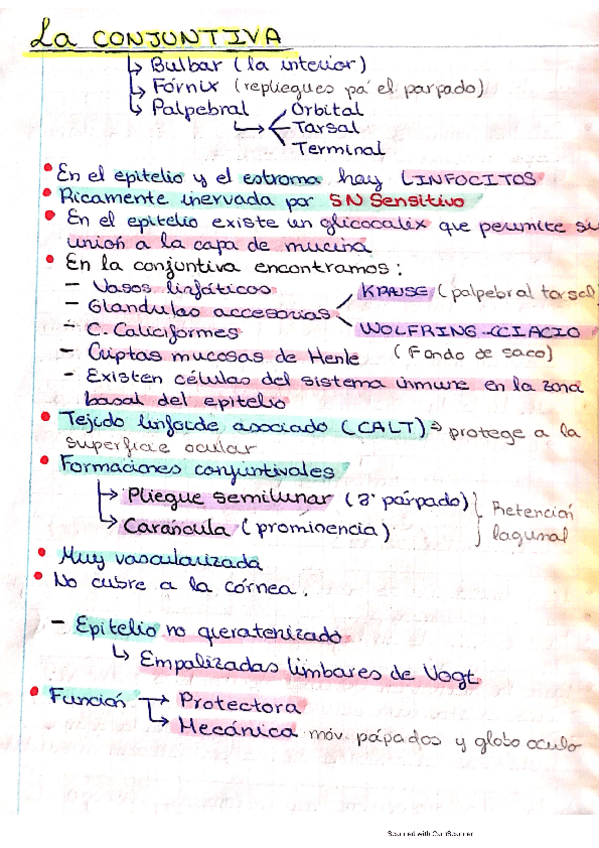 La CONJUNTIVA
↳ Bulbar (la interior)
↳ Fórnix (repliegues pa' el parpado)
↳ Palpebral → Orbital
Tarsal
Terminal
• En el epitelio y el estroma hay LINFOCITOS
• Ricamente inervada por SN Sensitivo
• En el epitelio existe un glicocalix que permite su
unión a la capa de mucina
• En la conjuntiva encontramos:
- Vasos linfáticos
- Glandulas accesorias KRAUSE (palpebral tarsal)
- C. Caliciformes WOLFRING-CIACIO
- Criptas mucosas de Henle (Fondo de saco)
- Existen células del sistema inmune en la zona
basal del epitelio
• Tejido linfoide asociado (CALT) → protege a la
superficie ocular
• Formaciones conjuntivales
↳ Pliegue semilunar (3º párpado) } Retención
↳ Carúncula (prominencia) lagunal
• Muy vascularizada
• No cubre a la córnea.
- Epitelio no queratenizado
↳ Empalizadas limbares de Vogt
• Función → Protectora
↳ Mecánica móv. pápados y globo ocular
Scanned with CamScanner